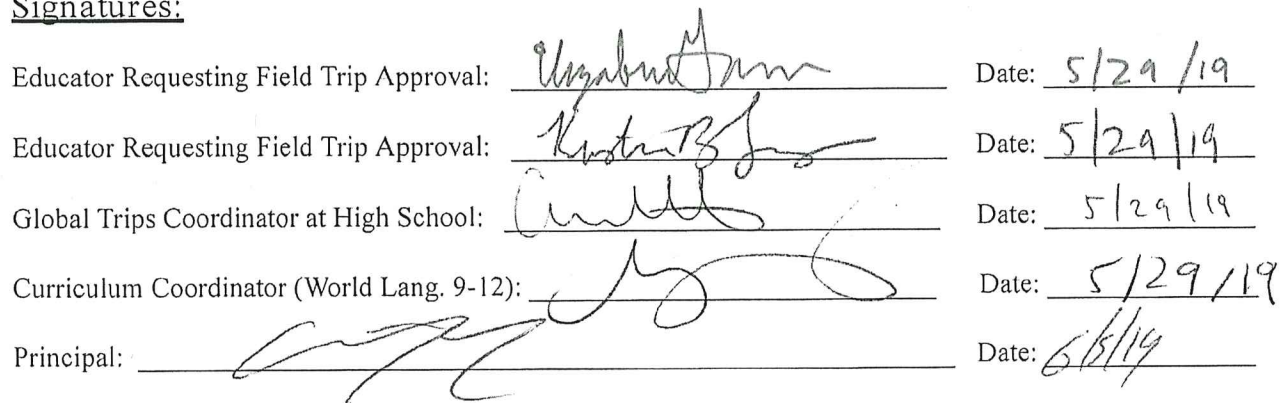 Signatures:
Educator Requesting Field Trip Approval: Date: 5/29/19
Educator Requesting Field Trip Approval: Date: 5/29/19
Global Trips Coordinator at High School: Date: 5/29/19
Curriculum Coordinator (World Lang. 9-12): Date: 5/29/19
Principal: Date: 6/5/19